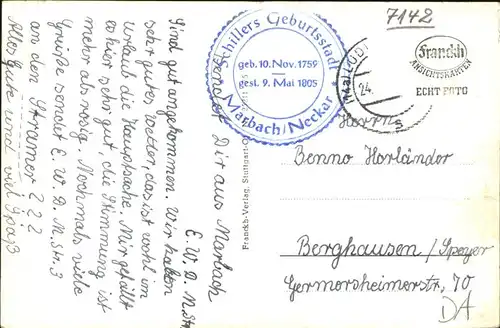 7142
Schillers Geburtsstadt
geb. 10. Nov. 1759
gest. 9. Mai 1805
Marbach/Neckar
Franckh
ANSICHTSKARTEN
ECHT FOTO
24.
Herrn
Benno Horländer
Berghausen/Speyer
Germersheimerstr. 70
DA
Franckh-Verlag, Stuttgart-O
Dir aus Marbach
E. W. D. N. Str
Sind gut angekommen. Wir haben
sehr gutes Wetter, das ist wohl im
Urlaub die Hauptsache. Mir gefällt
es hier sehr gut, die Stimmung ist
mehr als rosig. Nochmals viele
Grüße sendet E. W. D. N. Str. 3
an den Stramer 222
Alles Gute und viel Spaß